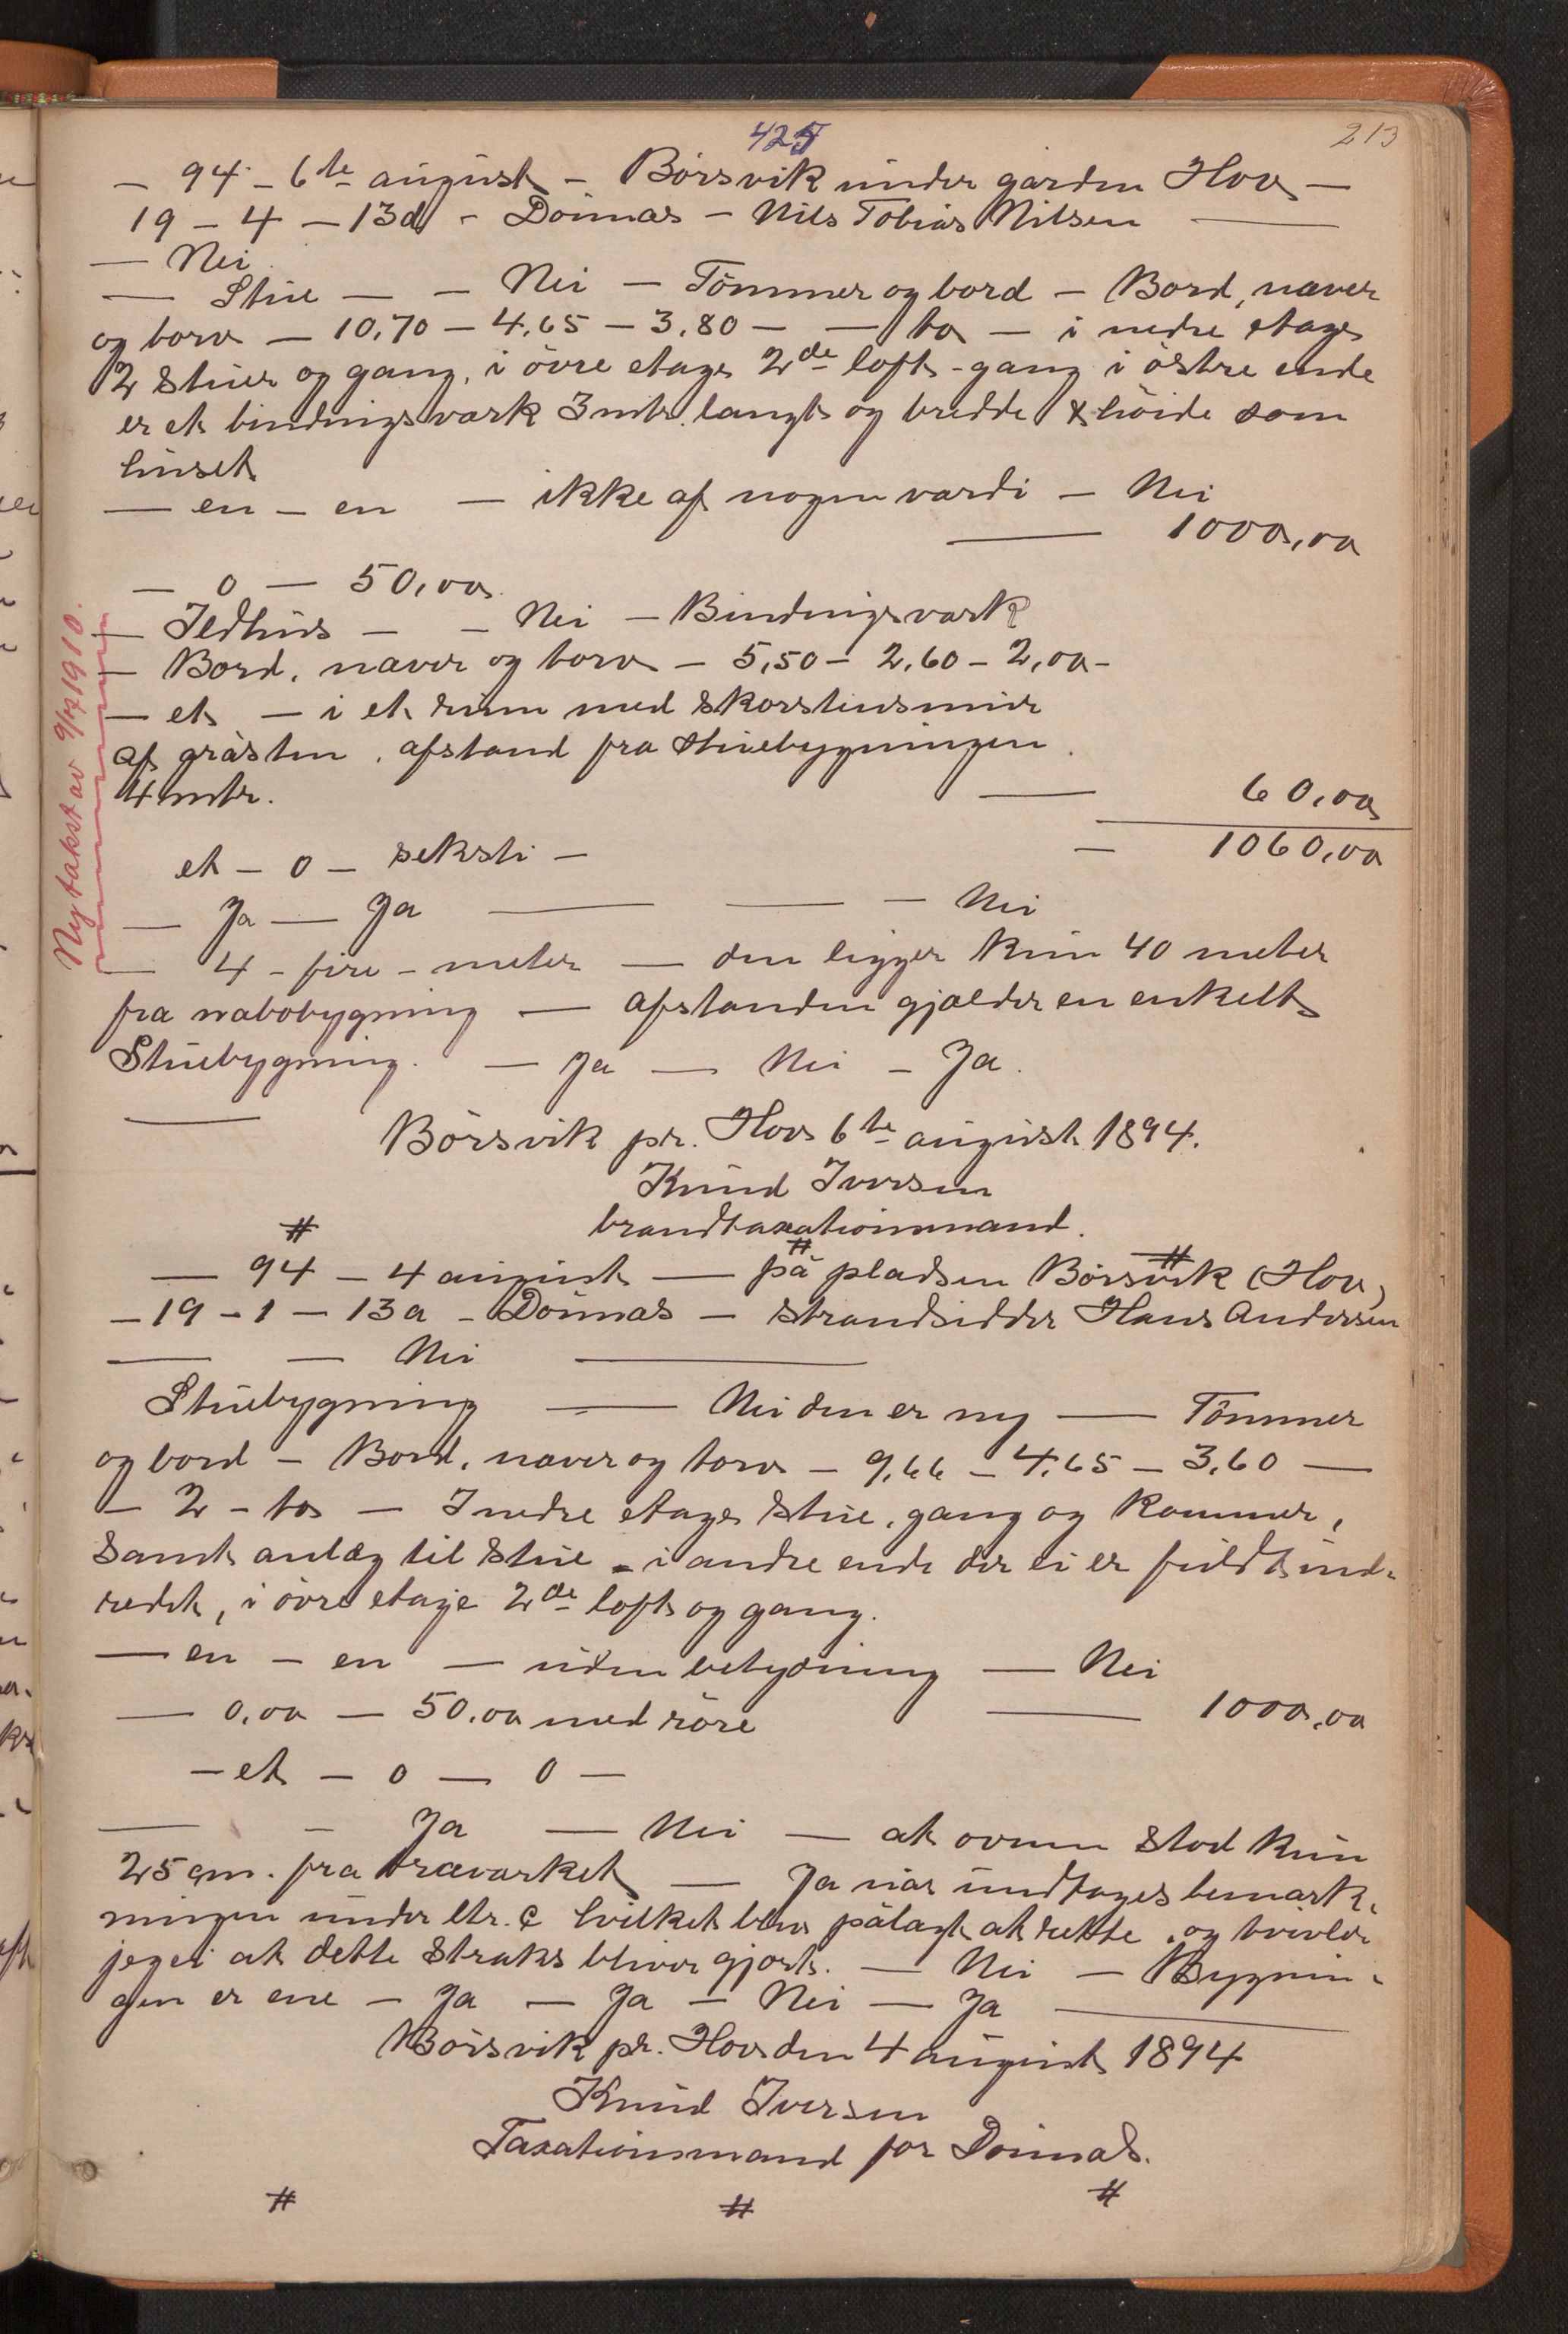 425
213
— 94 – 6te august – Börsvik under gården Hov —
19 – 4 – 13d – Dönnæs – Nils Tobias Nilsen —
— Nei
— Stue — – Nei — Tömmer og bord – Bord, næver
og torv — 10,70 – 4,65 – 3,80 – — to — i nedre etage
2 stuer og gang, i övre etage 2de loft - gang i östre ende
er et bindingsværk 3 mtr. langt og bredde & höide som
huset
— en – en — ikke af nogen værdi – Nei
— 1000,00
— 0 — 50,00
— Ildhus – – Nei – Bindingsværk
— Bord, næver og torv – 5,50 – 2,60 – 2,00 –
— et — i et rum med skorstensmur
af gråsten, afstand fra stuebygningen
4 mtr. — 60,00
et – 0 – seksti – — 1060,00
— Ja — Ja — — – Nei
— 4 – fire – meter — den ligger kun 40 meter
fra nabobygning — afstanden gjælder en enkelt
Stuebygning. — Ja — Nei – Ja.
— Börsvik pr. Hov 6te august 1894.
Knud Iversen
brandtaxationsmand.
# # #
— 94 – 4 august — på pladsen Börsvik (Hov)
– 19 – 1 – 13a – Dönnæs – strandsidder Hans Andersen
— — Nei —
Stuebygning — Nei den er ny — Tömmer
og bord – Bord, næver og torv – 9,66 – 4,65 – 3,60 —
– 2 – to – I nedre etage stue, gang og kammer,
samt anlæg til stue – i andre ende der ei er fuldt ind-
redet, i övre etage 2de loft og gang.
— en – en — uden betydning — Nei
— 0,00 — 50,00 med röre — 1000,00
– et – 0 — 0 –
— – Ja — Nei — at ovnen stod kun
25 cm. fra træværket — Ja når undtages bemærk-
ningen under ltr. c hvilket blev pålagt at rette, og tvivler
jeg ei at dette straks bliver gjort. — Nei — Bygnin-
gen er ene – Ja – Ja – Nei – Ja —
Börsvik pr. Hov den 4 august 1894
Knud Iversen
Taxationsmand for Dönnæs.
# # #
Ny takst av 9/7 1910.